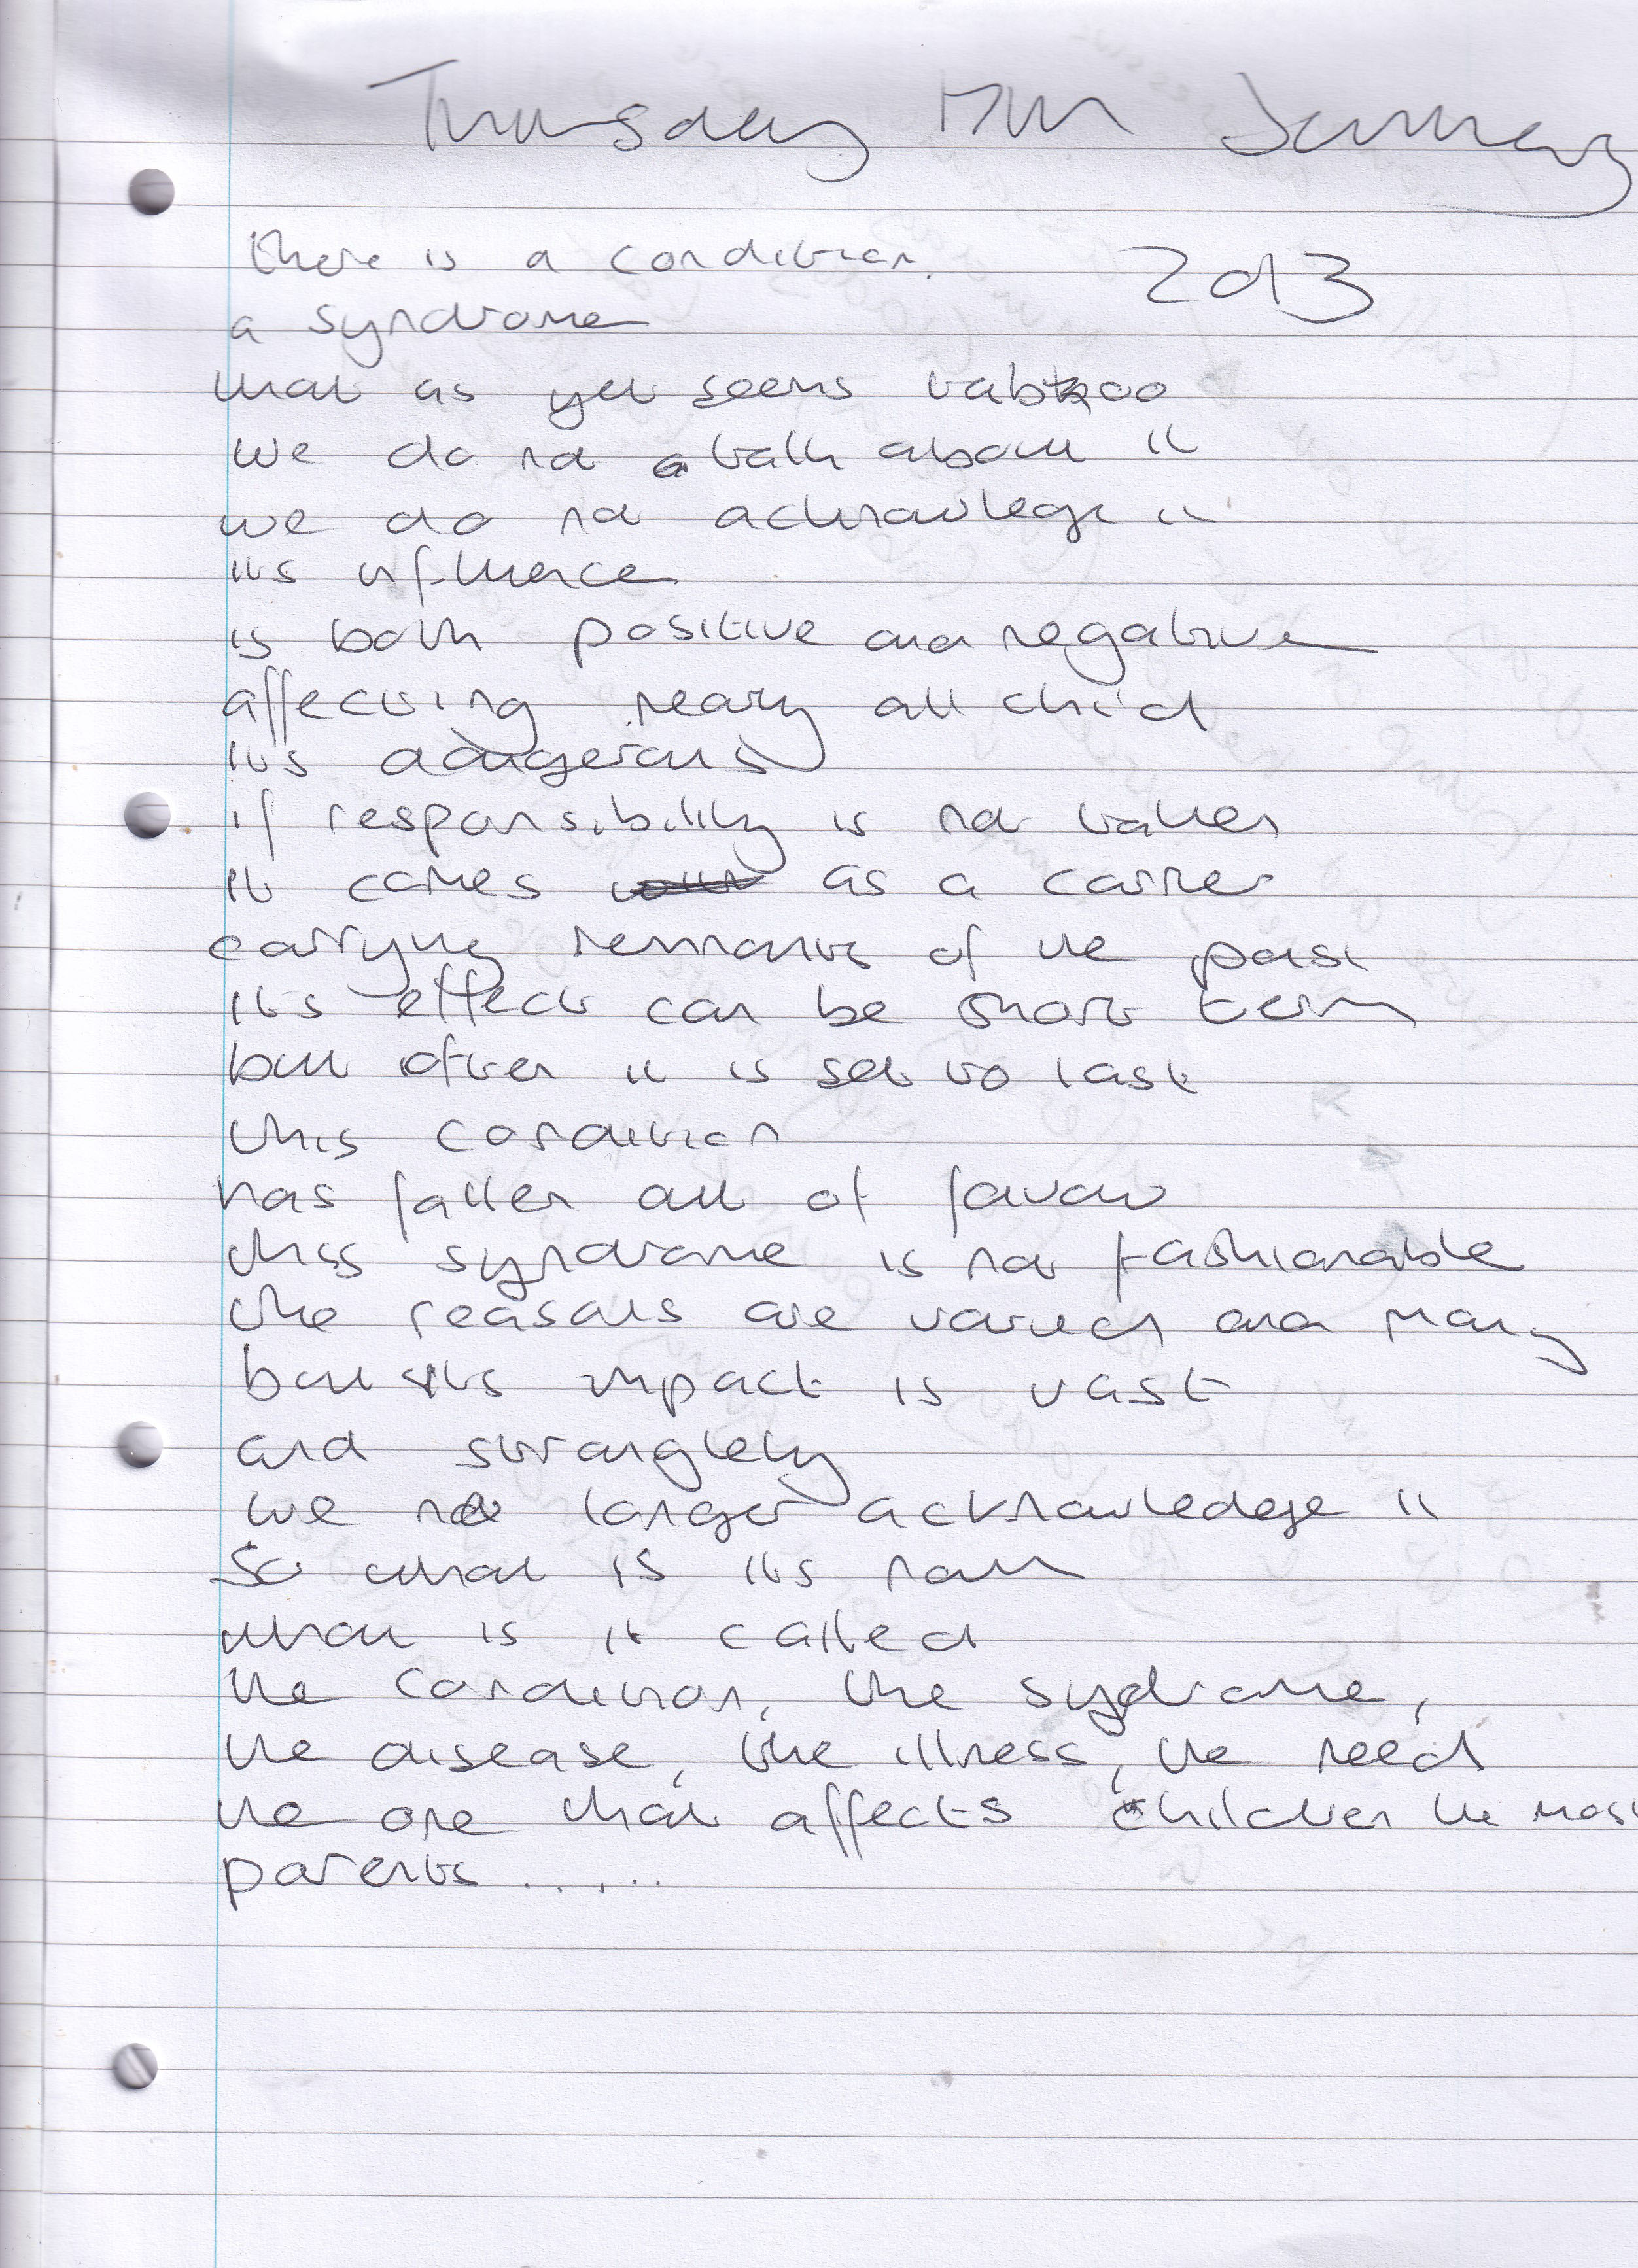 Thursday 17th January
2013
there is a condition.
a syndrome
that as yet seems tabboo
we do not talk about it
we do not acknowlege it
its influence
is both positive and negative
affecting neary all child
its dangerous
if responsibility is not taken
it comes as a carrier
carrying remnants of the past
its effect can be short term
but often it is set to last
this condition
has fallen out of favour
this syndrome is not fashionable
the reasons are varied and many
but its impact is vast
and stranglely
we no longer acknowledge it
So what is its nam
what is it called
the condition, the sydrome,
the disease, the illness, the need
the one that affects children the most
parents .....